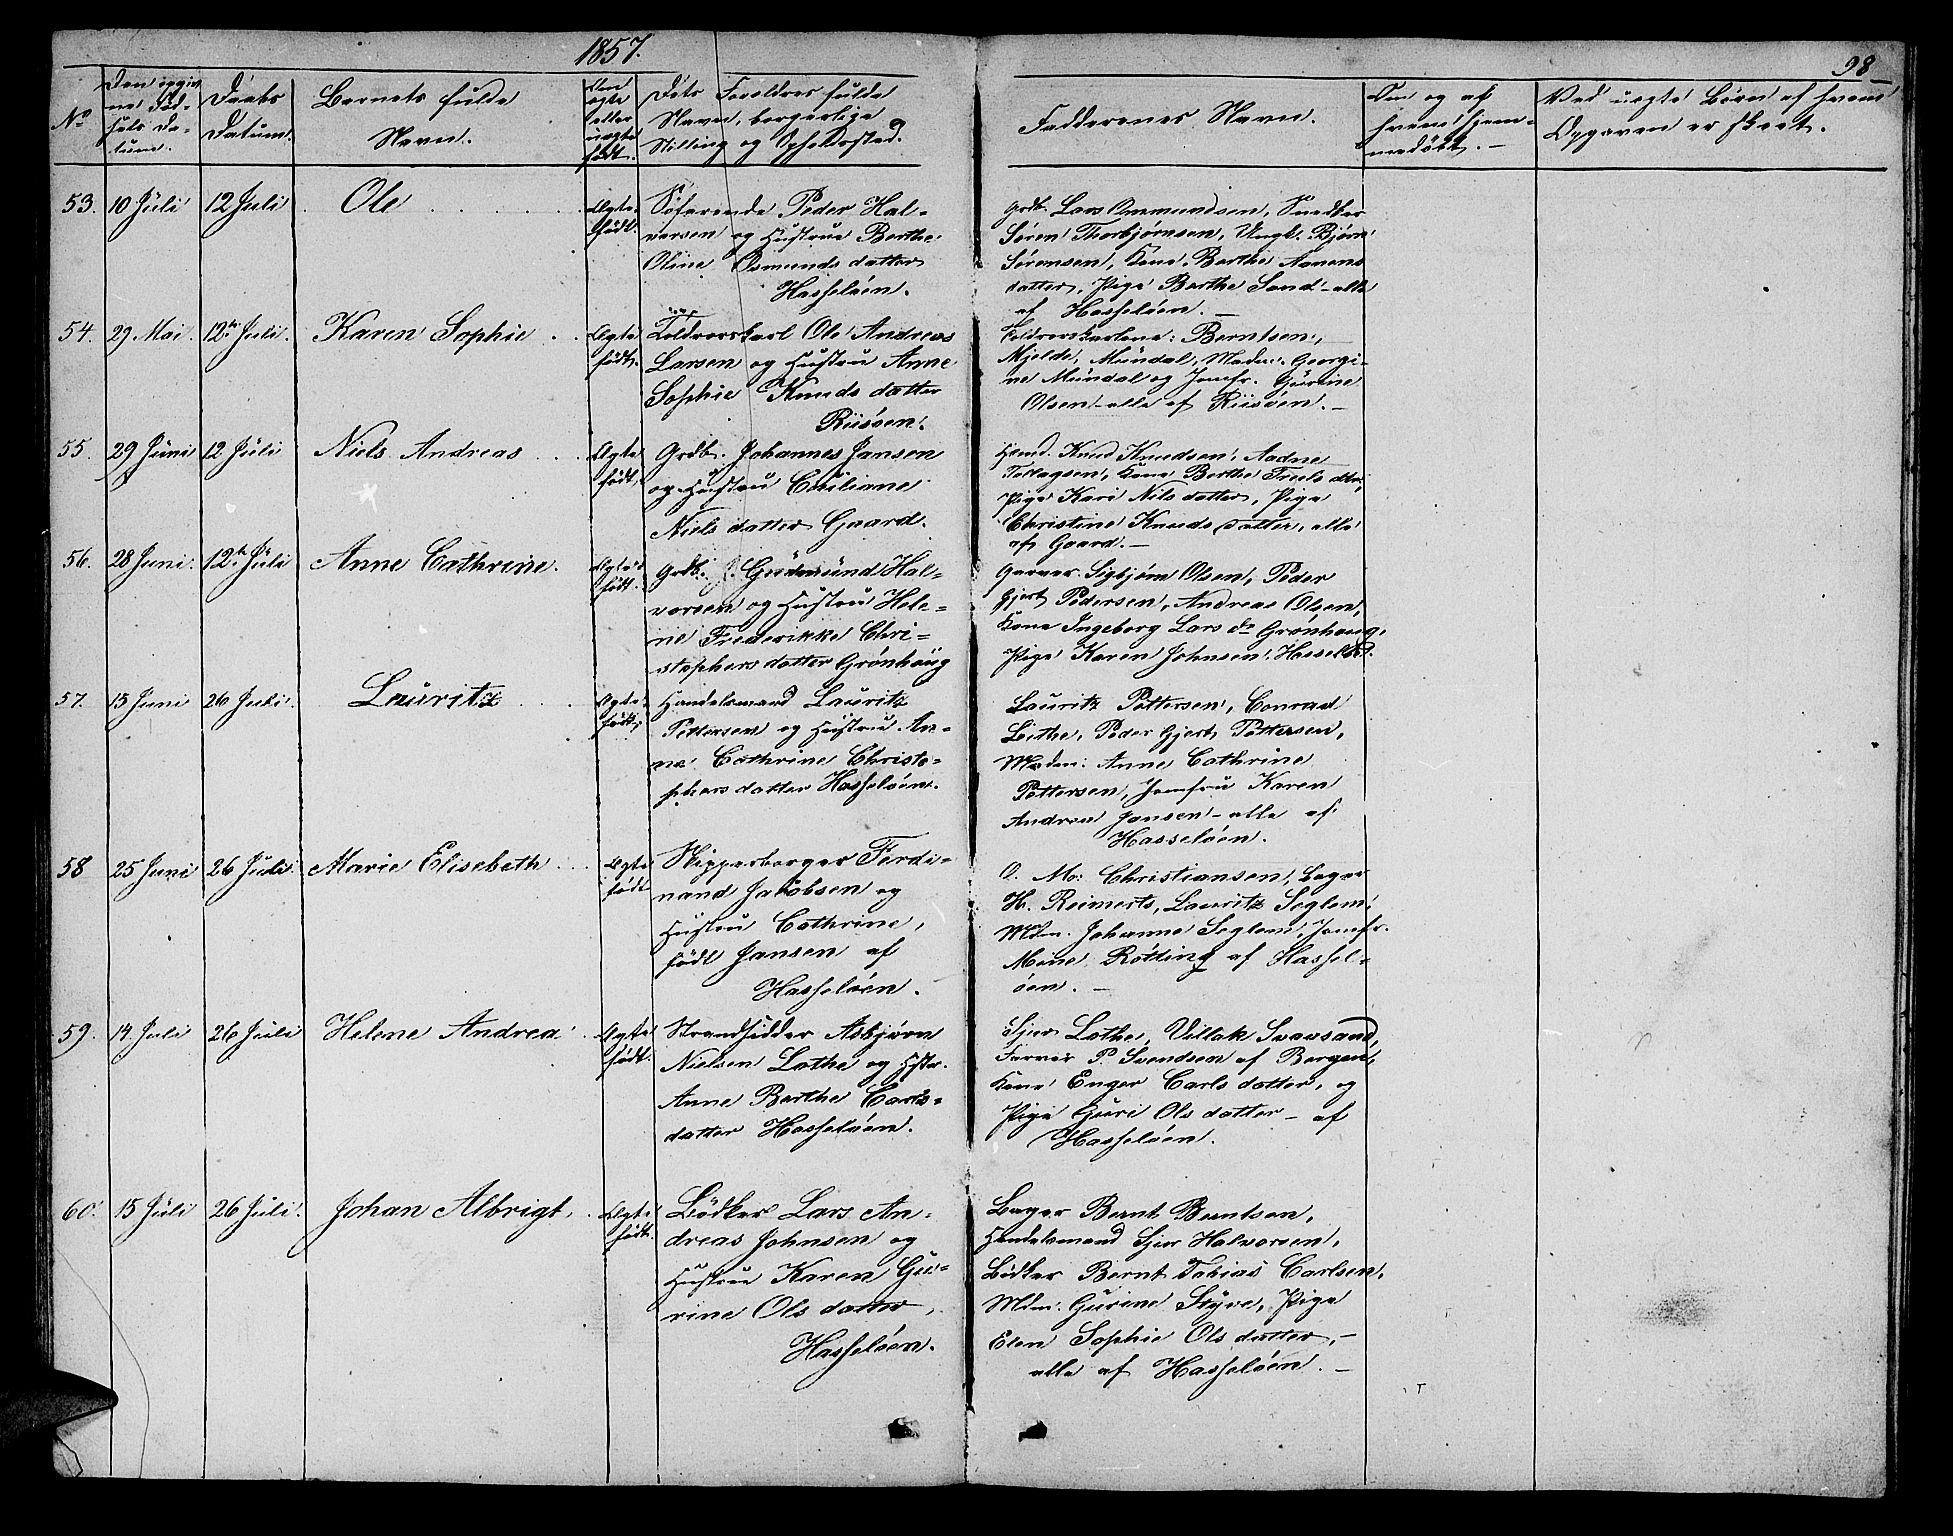 1857.
98
No
Den opgiv
ne Föd-
sels Da-
tum.
Daabs
Datum.
Barnets fulde
Navn.
Om
ægte
eller
uægte
født.
Dets Foreldres fulde
Navn, borgerlige
Stilling og Opholdssted.
Faddernes Navn.
Om og af
hvem hjem-
medöbt. -
Ved uægte Börn af hvem
Opgaven er skeet.
53. 10 Juli 12 Juli Ole
Ægte
född.
Söfarende Peder Hal-
vorsen og Hustrue Berthe
Oline Osmundsdatter
Hasseløen.
Grdb. Lars Ommundsen, Snedker
Søren Thorbjørnsen, Ungk. Bjørn
Sørensen, Kone Berthe
datter, Pige Berthe Sand - alle
af Hasseløen. -
54. 29 Mai. 12te Juli. Karen Sophie
Ægte
född.
Toldroerskarl Ole Andreas
Larsen og Hustrue Anne
Sophie Knudsdatter
Riisöen.
Toldroerskarlene: Berntsen,
Mjelde, Mundal, Madm. Georgi-
ne Mundal og Jomfr. Gurine
Olsen - alle af Riisöen. -
55. 29 Juni 12 Juli Niels Andreas
Ægte
född,
Grdb. Johannes Jansen
og Hustrue Ceciliane
Nielsdatter Gaard.
Knud Knudsen, Aadne
Kone Berthe
Pige Kari Nilsdatter, Pige
Christine Knudsdatter, alle
af Gaard. -
56. 28 Juni. 12te Juli Anne Cathrine.
Ægte
född.
Grdb. Gudmund Hal-
vorsen og Hustrue Hele-
ne Frederikke Chri-
stophersdatter Grønhaug
Garver Sigbjørn Olsen, Peder
Gjert Pedersen, Andreas Olsen,
Kone Ingeborg Lars dr Grønhaug,
Pige Karen Johnsen,
57. 15 Juni 26 Juli. Lauritz
Ægte
född.
Handelsmand Lauritz
Pettersen og Hustrue An-
ne Cathrine Christo-
phersdatter Hasseløen.
Lauritz Pettersen, Conrad
Lithe, Peder Gjert Pettersen,
Madm: Anne Cathrine
Pettersen, Jomfru Karen
Andrea Jansen - alle af
Hasseløen.
58 25 Juni 26 Juli. Marie Elisebeth
Ægte
född
Skipperborger Ferdi-
nand Jacobsen og
Hustrue Cathrine,
född Jansen af
Hasseløen.
O. M. Christiansen, Bager
H. Reimerts, Lauritz Seglem,
Mdm. Johanne Seglem, Jomfr.
Mine Rötting af Hassel-
öen. -
59. 14 Juli 26 Juli Helene Andrea
Ægte
född.
Strandsidder Asbjørn
Nielsen Lothe og Hstr.
Anne Berthe Carls-
datter Hasseløen.
Sjur Lothe, Villak Svarsand,
Farver P. Svendsen af Bergen,
Kone Enger Carlsdatter, og
Pige Guri Olsdatter - af
Hasseløen.
60. 15 Juli 26 Juli. Johan Albrigt.
Ægte
född.
Bödker Lars An-
dreas Johnsen og
Hustrue Karen Gu-
rine Olsdatter,
Hasseløen.
Bager Bernt Berntsen,
Handelsmand Sjur Halvorsen,
Bödker Bernt Tobias Carlsen,
Mdm. Gurine Styve, Pige
Elen Sophie Olsdatter, -
alle af Hasseløen. -